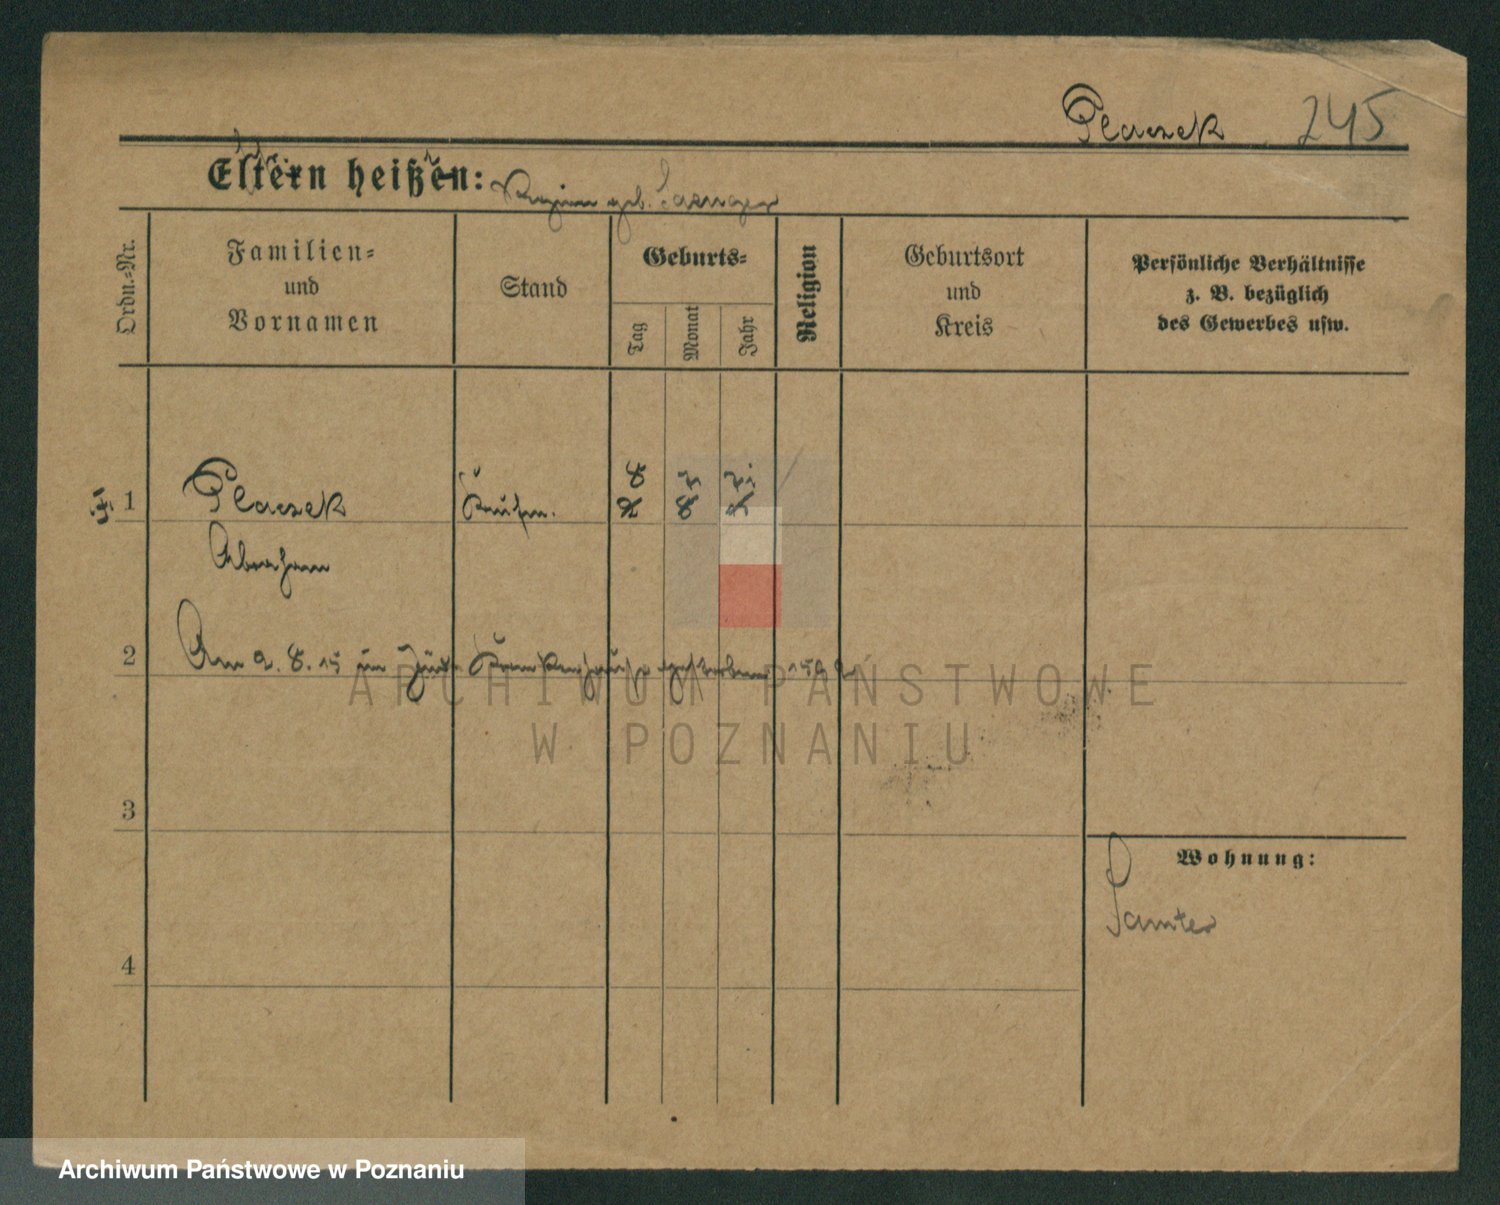 Placzek 245
Eltern heißen: geb.
Ordn.-Nr.
Familien-
und
Vornamen
Stand
Geburts-
Tag
Monat
Jahr
Religion
Geburtsort
und
Kreis
Persönliche Verhältnisse
z. B. bezüglich
des Gewerbes usw.
1
Placzek
Kaufm.
Abraham
2
Am 2. 8. 15 im Krankenhause gestorben
3
4
Wohnung:
Samter
ARCHIWUM PAŃSTWOWE
W POZNANIU
Archiwum Państwowe w Poznaniu